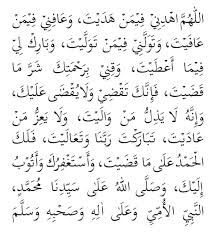 اَللّٰهُمَّ اهْدِنِيْ فِيْمَنْ هَدَيْتَ، وَعَافِنِيْ فِيْمَنْ
عَافَيْتَ، وَتَوَلَّنِيْ فِيْمَنْ تَوَلَّيْتَ، وَبَارِكْ لِيْ
فِيْمَا أَعْطَيْتَ، وَقِنِيْ بِرَحْمَتِكَ شَرَّ مَا
قَضَيْتَ، فَإِنَّكَ تَقْضِيْ وَلَا يُقْضَى عَلَيْكَ،
وَإِنَّهُ لَا يَذِلُّ مَنْ وَالَيْتَ، وَلَا يَعِزُّ مَنْ
عَادَيْتَ، تَبَارَكْتَ رَبَّنَا وَتَعَالَيْتَ، فَلَكَ
الْحَمْدُ عَلَى مَا قَضَيْتَ، وَأَسْتَغْفِرُكَ وَأَتُوْبُ
إِلَيْكَ، وَصَلَّى اللهُ عَلَى سَيِّدِنَا مُحَمَّدٍ،
النَّبِيِّ الْأُمِّيِّ وَعَلَى آلِهِ وَصَحْبِهِ وَسَلَّمَ